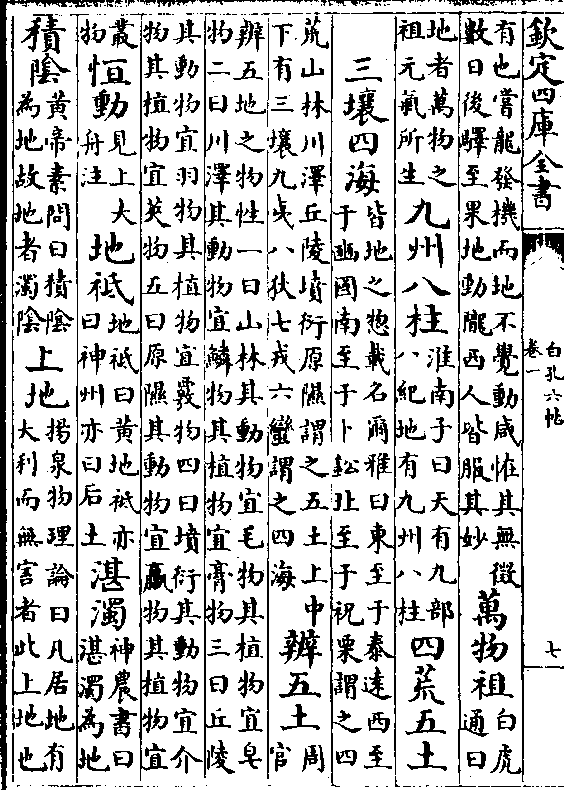 欽定四庫全書
白孔六帖
卷一
七
有也嘗龍發機而地不覺動咸恠其無徵數日後驛至果地動隴西人皆服其妙萬物祖白虎通曰
地者萬物之祖元氣所生九州八柱淮南子曰天有九部八紀地有九州八柱四荒五土
三壤四海皆地之揔載名爾雅曰東至于泰逺西至于豳國南至于卜鈆北至于祝栗謂之四
荒山林川澤丘陵墳衍原隰謂之五土上中下有三壤九夷八狄七戎六蠻謂之四海辨五土周官
辨五地之物性一曰山林其動物宜毛物其植物宜皁物二曰川澤其動物宜鱗物其植物宜膏物三曰丘陵
其動物宜羽物其植物宜覈物四曰墳衍其動物宜介物其植物宜莢物五曰原隰其動物宜臝物其植物宜
叢物恒動見上大舟注地祇地祇曰黄地祇亦曰神州亦曰后土湛濁神農書曰湛濁為地
積陰黄帝素問曰積陰為地故地者濁陰上地楊泉物理論曰凡居地有大利而無害者此上地也